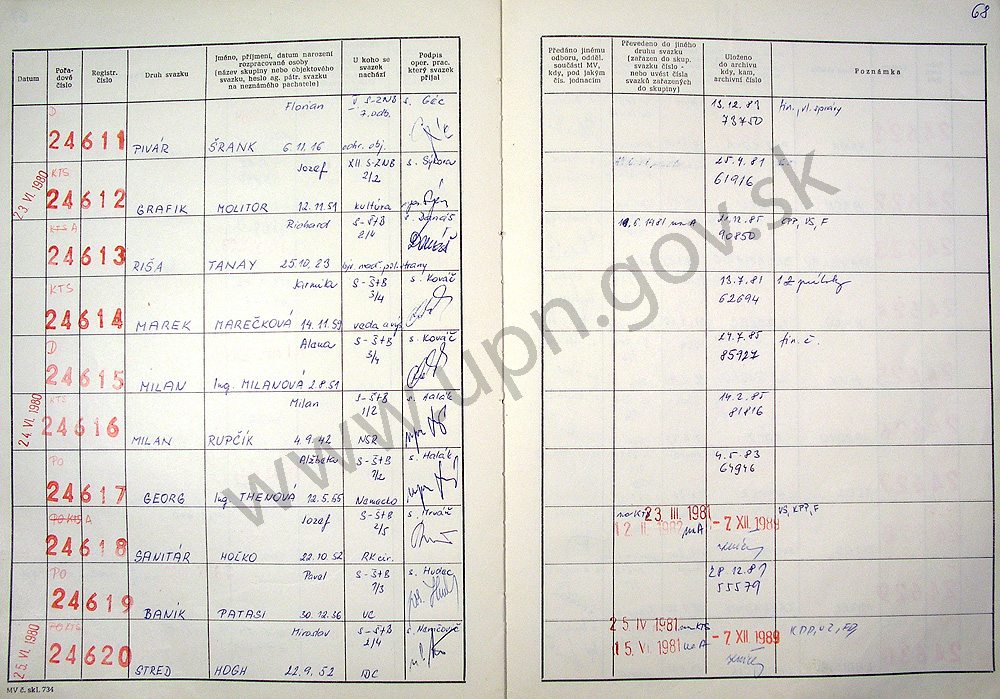 68
Datum
Pořadové číslo
Registr. číslo
Druh svazku
Jméno, příjmení, datum narození
rozpracované osoby
(název skupiny nebo objektového
svazku, heslo ag. pátr. svazku
na neznámého pachatele)
U koho se
svazek
nachází
Podpis
oper. prac.
který svazek
přijal
Předáno jinému
odboru, odděl.
součásti MV,
kdy, pod jakým
čís. jednacím
Převedeno do jiného
druhu svazku
(zařazen do skup.
svazku číslo -
nebo uvést čísla
svazků zařazených
do skupiny)
Uloženo
do archivu
kdy, kam,
archivní číslo
Poznámka
D Florian S-ZNB s. Géc 13.12.83
7.odb. 73750
24611 PIVÁR ŠRANK 6.11.16 ochr. obj.
23. VI. 1980
KTS Jozef XII. S-ZNB s. Sýkora 25.9.81
2/2 61916
24612 GRAFIK MOLITOR 12.11.51 kultúra
KTS A Richard S-ŠtB s. Danáš 1981 na A 85
2/4 90850
24613 RIŠA TANAY 25.10.23 strany
KTS Jarmila S-ŠtB s. Kováč 13.7.81
3/4 62694
24614 MAREK MAREČKOVÁ 14.11.59 veda a
D Alena S-ŠtB s. Kováč 24.7.85 fin. č.
3/4 85927
24615 MILAN Ing. MILANOVÁ 2.8.51
24. VI. 1980
KTS Milan S-ŠtB s. Halák 14.2.85
1/2 81816
24616 MILAN RUPČÍK 4.9.42 NSR
PO Alžbeta S-ŠtB s. Halák 4.5.83
64946
24617 GEORG Ing. THENOVÁ 12.5.55 Nemecko
PO KTS A Jozef S-ŠtB s. Mrváň na KTS 23 III. 1981 VŠ, KPP, F
2/5 12. II. 1982 na A - 7 XII. 1989
24618 SANITÁR HOĽKO 22.10.52 RK cir.
PO Pavol S-ŠtB s. Hudec 28.12.81
1/3 55579
24619 BANÍK PATASI 30.12.36 VC
25. VI. 1980
PO KTS Miroslav S-ŠtB 25 IV 1981 na KTS
2/4 15. VI. 1981 na A - 7 XII. 1989
24620 STRED HOGH 22.9.52
MV č. skl. 734
www.upn.gov.sk